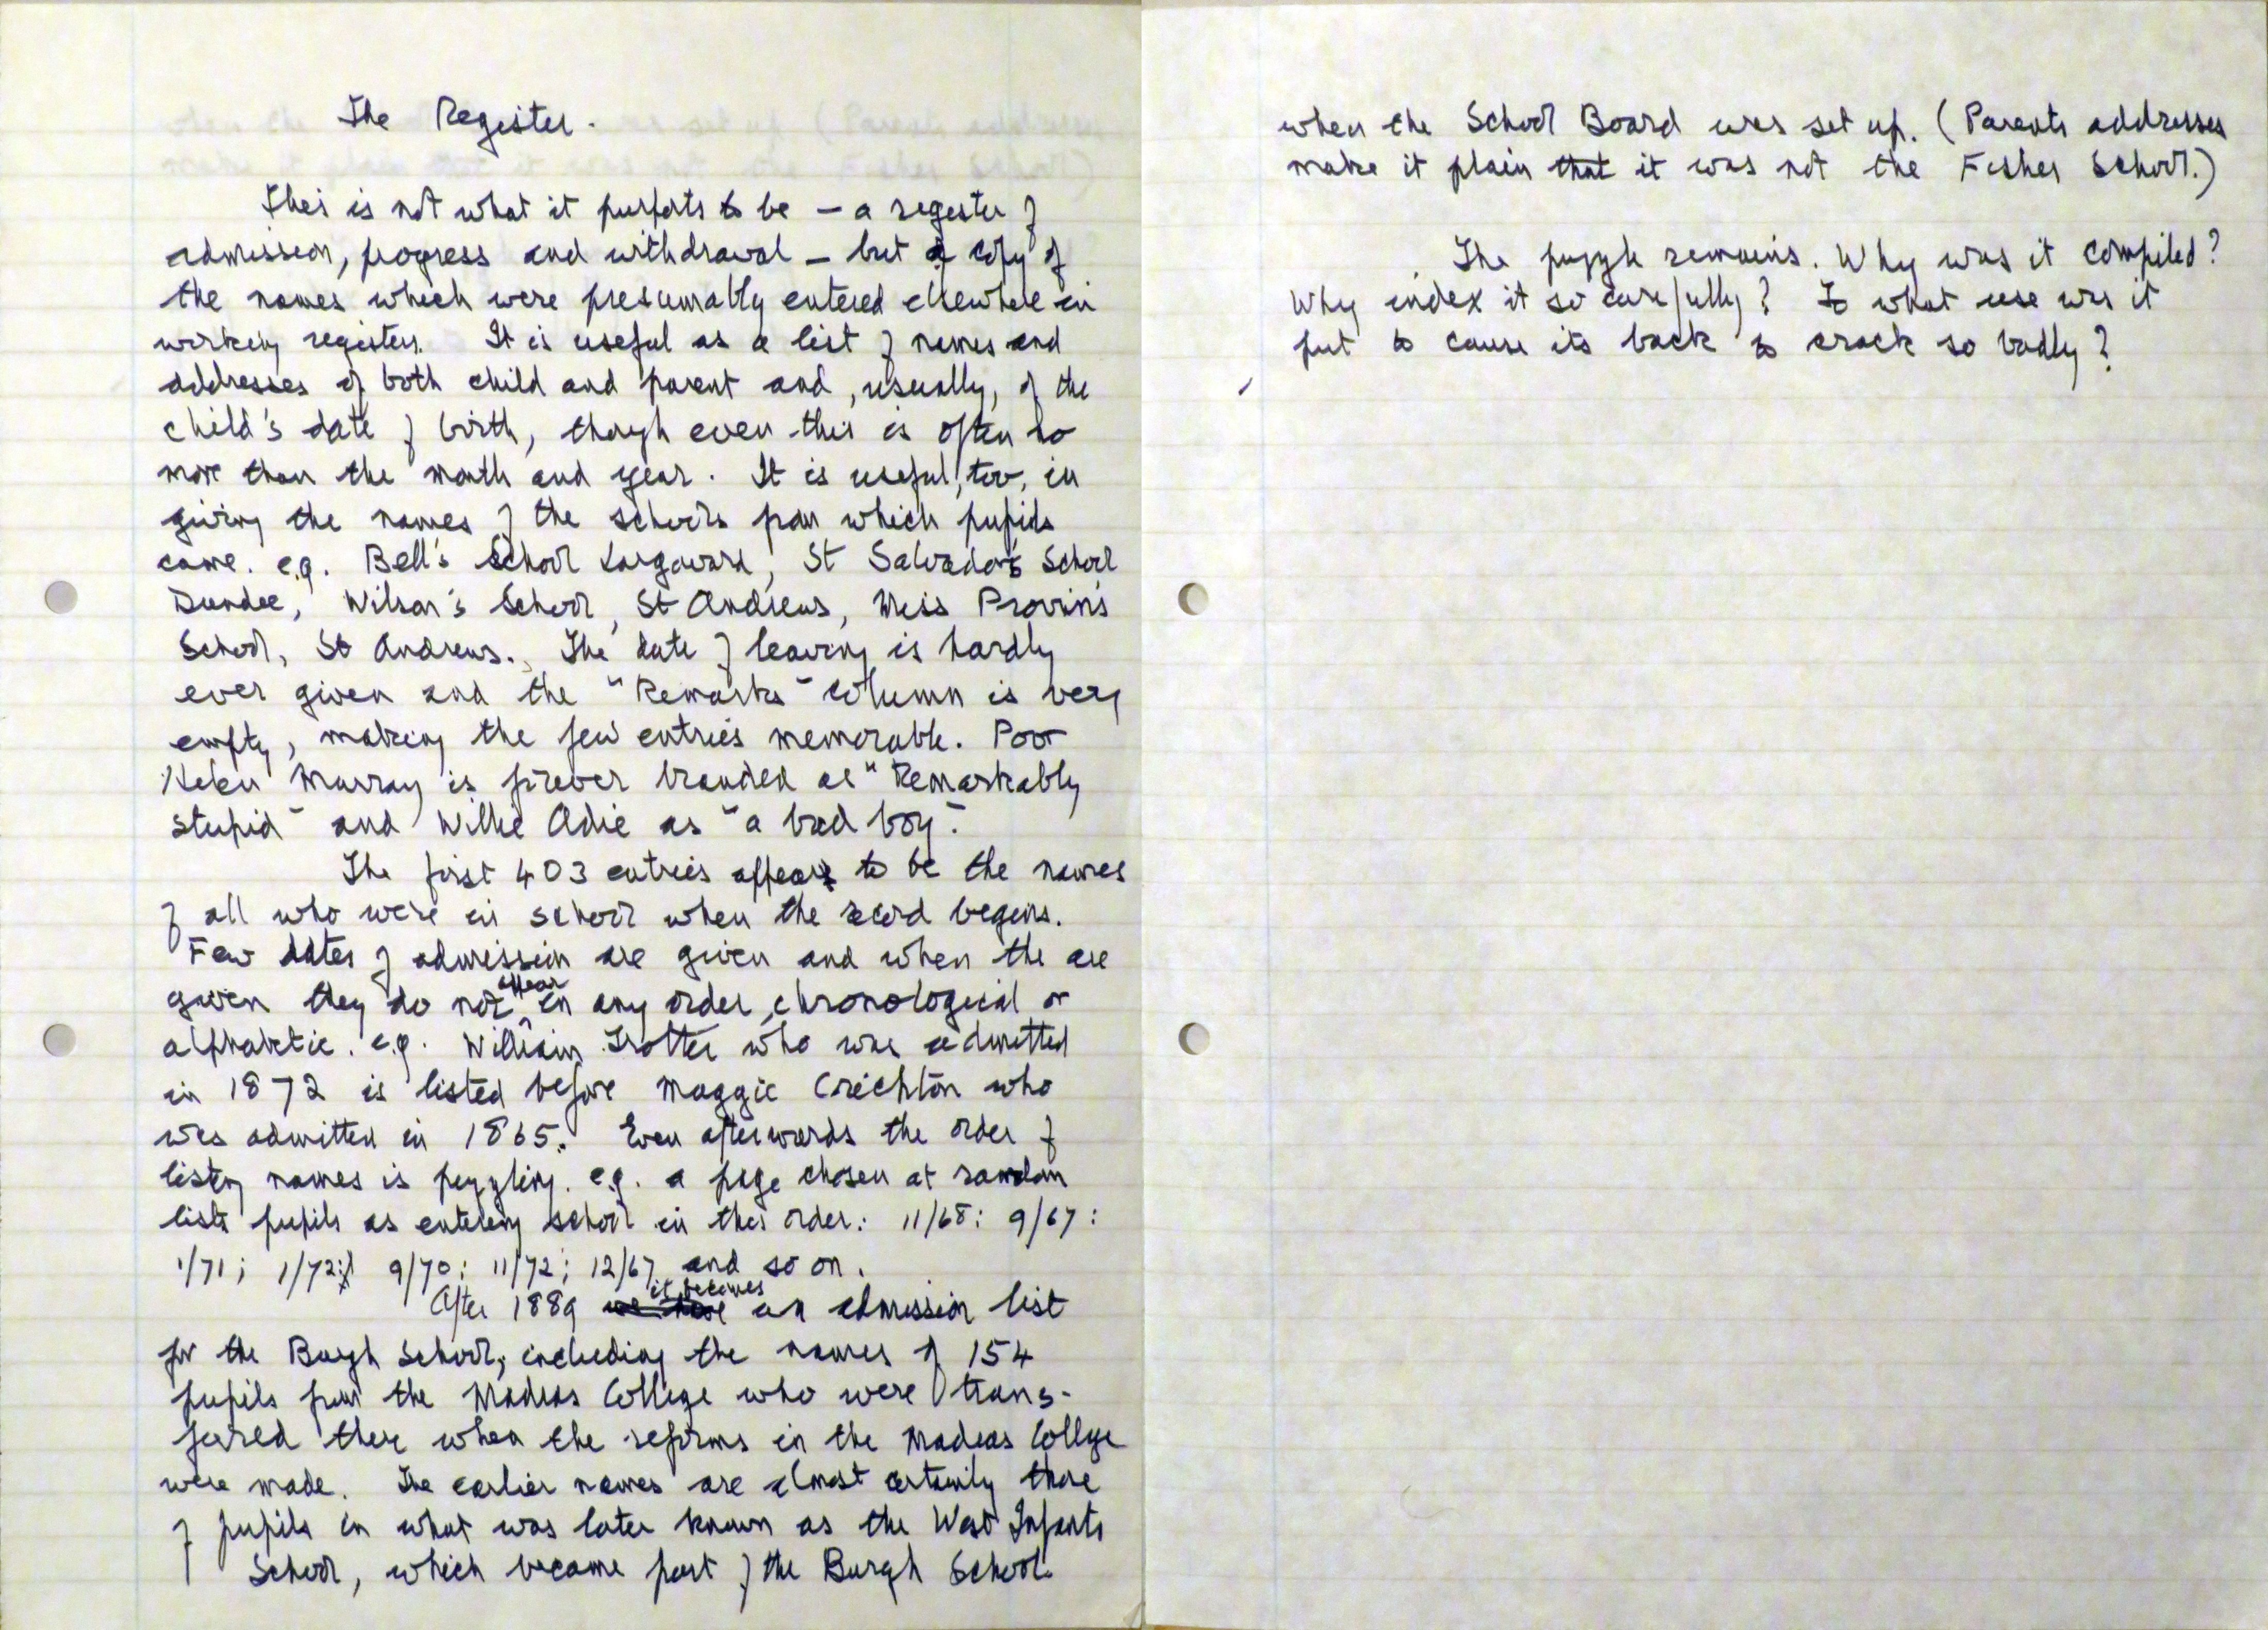 The Register.
This is not what it purports to be – a register of
admission, progress and withdrawal – but a copy of
the names which were presumably entered elsewhere in
working registers. It is useful as a list of names and
addresses of both child and parent and, usually, of the
child's date of birth, though even this is often no
more than the month and year. It is useful, too, in
giving the names of the schools from which pupils
came. e.g. Bell's School Largoward, St Salvador's School
Dundee, Wilson's School, St Andrews, Miss Provin's
School, St Andrews. The date of leaving is hardly
ever given and the "Remarks" column is very
empty, making the few entries memorable. Poor
Helen Murray is forever branded as "Remarkably
stupid" and Willie Adie as "a bad boy".
The first 403 entries appear to be the names
of all who were in school when the record begins.
Few dates of admission are given and when the are
given they do not appear in any order, chronological or
alphabetic. e.g. William Trotter who was admitted
in 1872 is listed before Maggie Crichton who
was admitted in 1865. Even afterwards the order of
listing names is puzzling. e.g. a page chosen at random
lists pupils as entering school in this order: 11/68: 9/67:
1/71; 1/72; 9/70: 11/72; 12/67 and so on.
After 1889 it becomes an admission list
for the Burgh School, including the names of 154
pupils from the Madras College who were trans-
ferred there when the reforms in the Madras College
were made. The earlier names are almost certainly those
of pupils in what was later known as the West Infants
School, which became part of the Burgh School
when the School Board was set up. (Parents addresses
make it plain that it was not the Fisher School.)
The puzzle remains. Why was it compiled?
Why index it so carefully? To what use was it
put to cause its back to crack so badly?